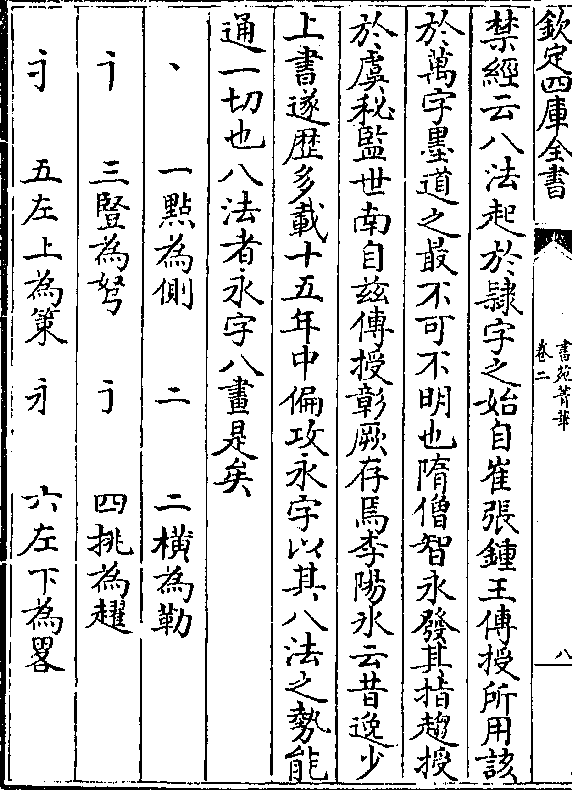 欽定四庫全書
書苑菁華
卷二
八
禁經云八法起於隷字之始自崔張鍾王傳授所用該
於萬字墨道之最不可不明也隋僧智永發其指趣授
於虞秘監世南自兹傳授彰厥存焉李陽氷云昔逸少
上書遂歴多載十五年中偏攻永字以其八法之勢能
通一切也八法者永字八畫是矣
丶 一點為側 二 二橫為勒
三豎為努 四挑為趯
五左上為策 六左下為畧